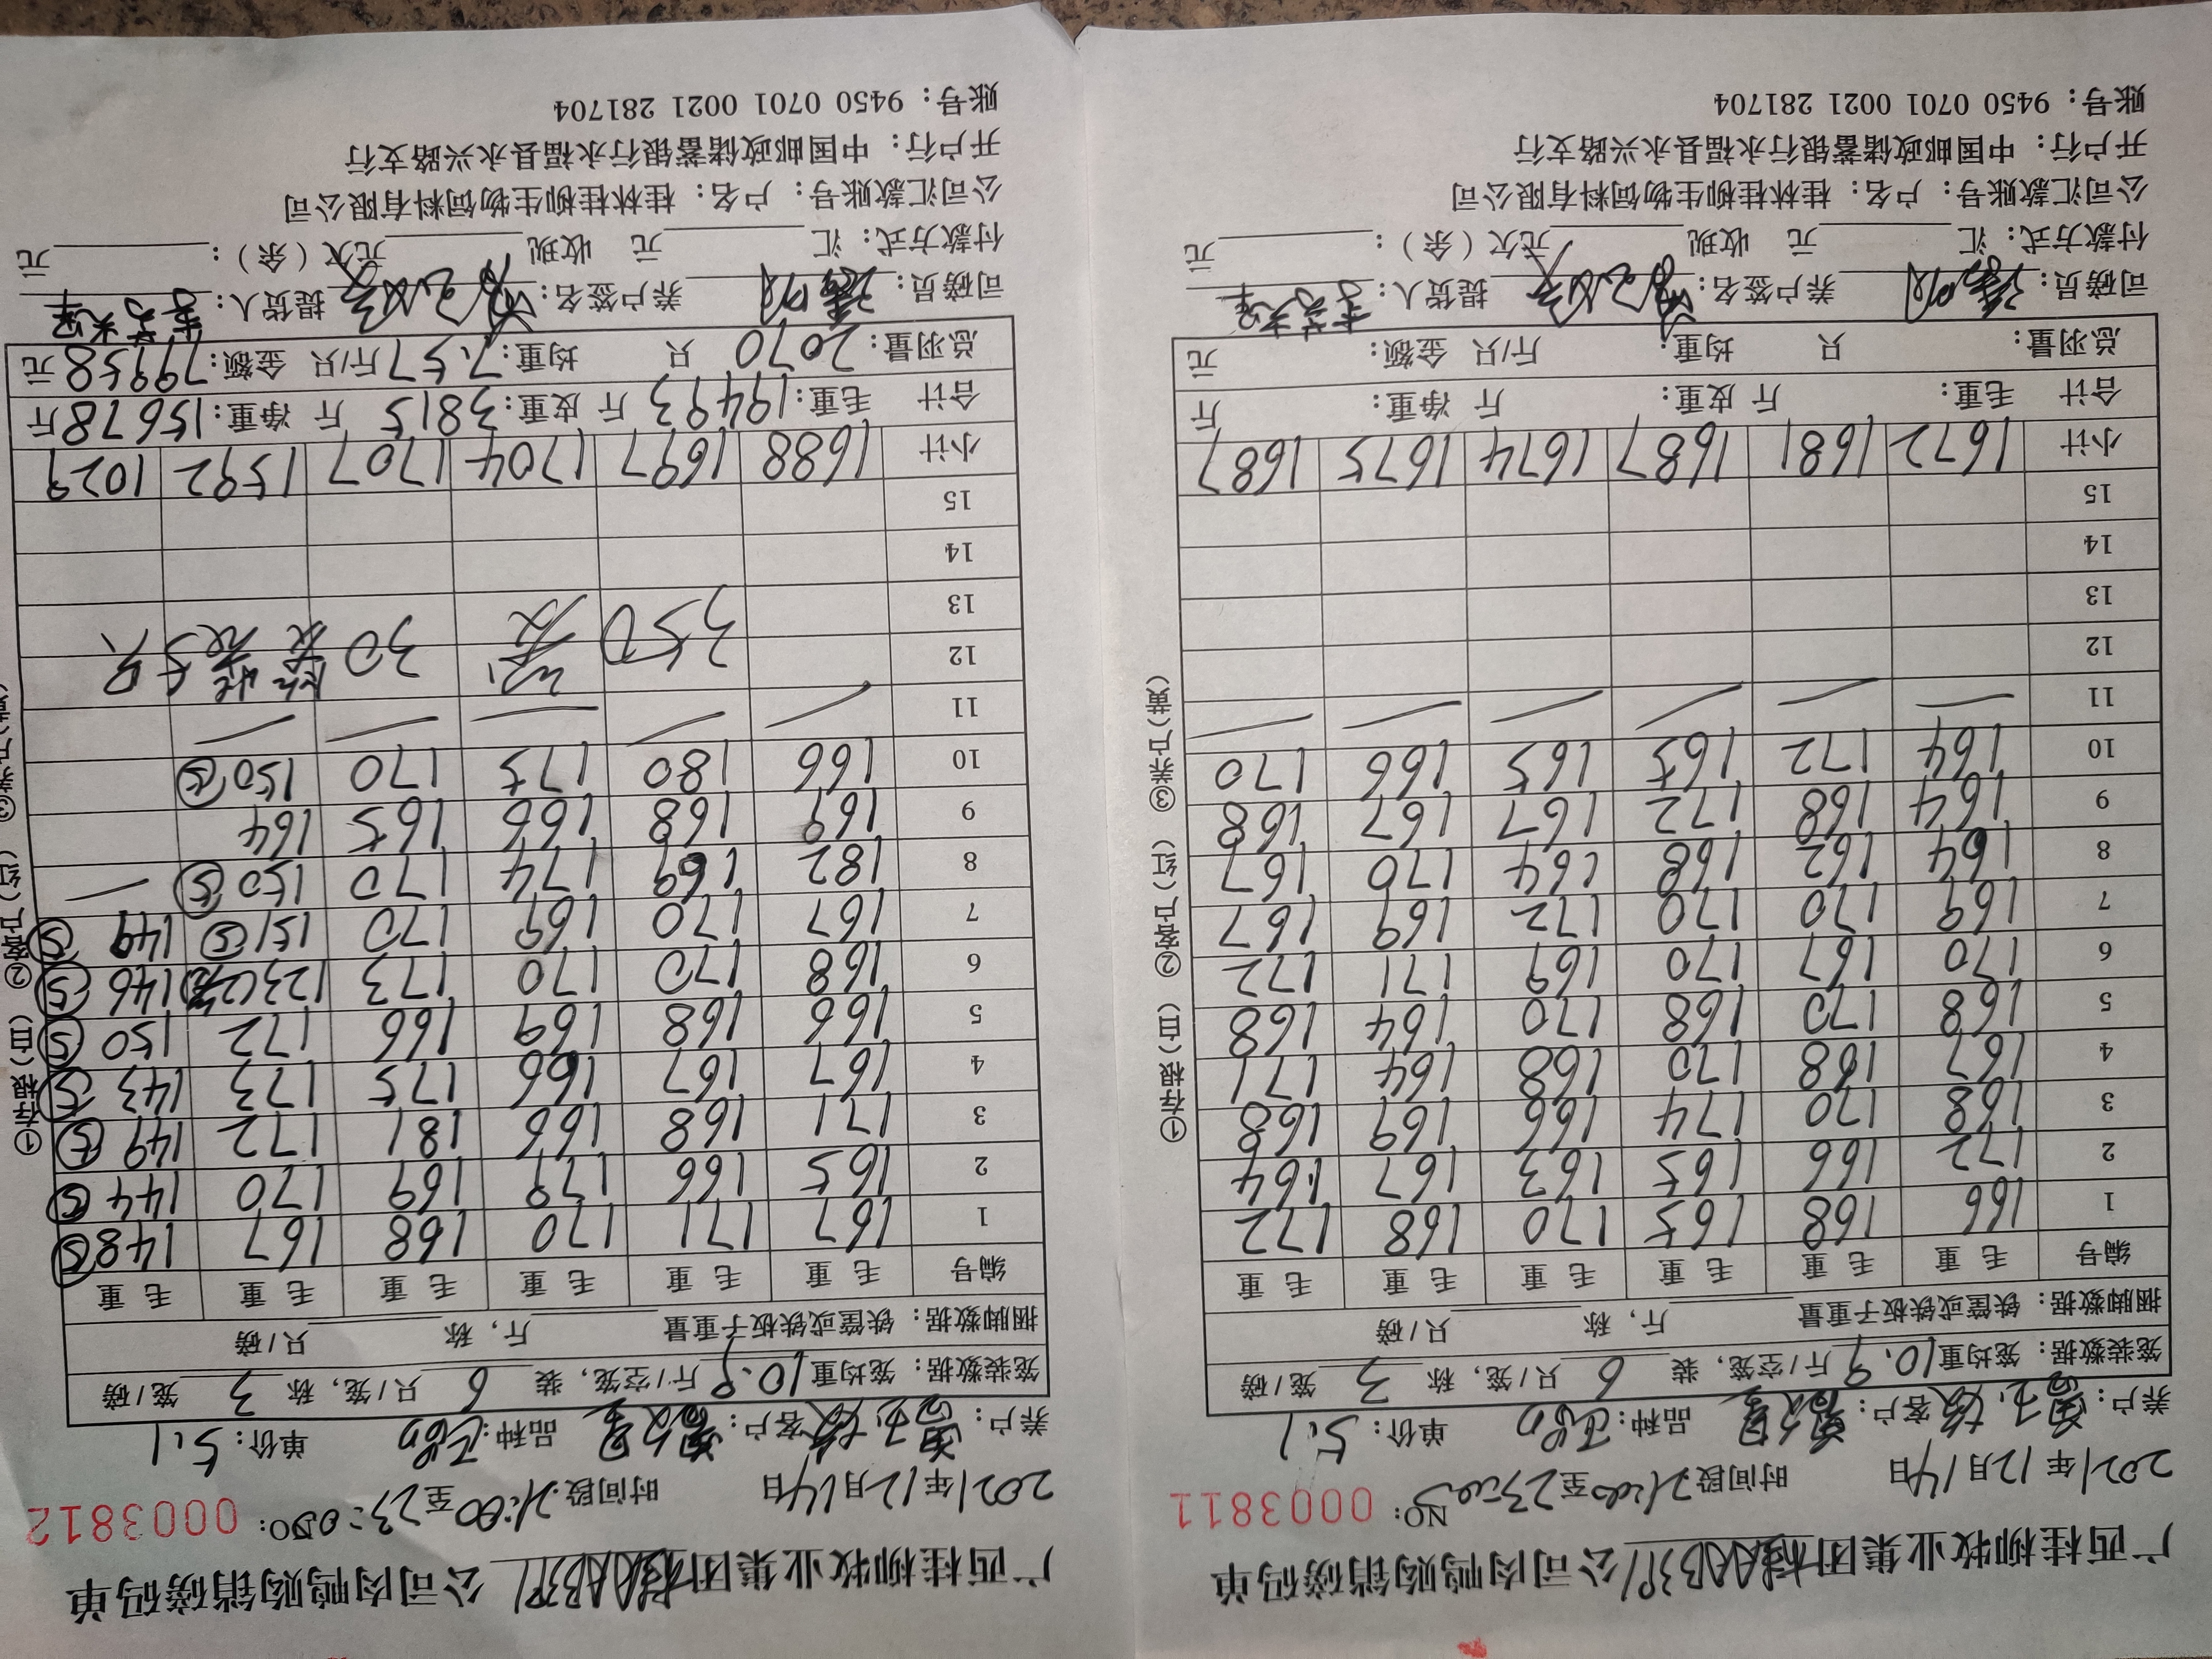 广西桂柳牧业集团公司肉鸭购销磅码单
2021年12月14日 时间段21:00至23:00 NO: 0003811
养户: 客户: 品种: 单价: 5.1
笼装数据: 笼均重10.9斤/空笼, 装 6 只/笼, 称 3 笼/磅
捆脚数据: 铁筐或铁板子重量 斤, 称 只/磅
编号 毛重 毛重 毛重 毛重 毛重 毛重
1 166 168 165 170 168 172
2 172 166 165 163 167 164
3 168 170 174 166 169 168
4 167 168 170 168 164 171
5 168 170 168 170 164 168
6 170 167 170 169 171 172
7 169 170 170 172 169 167
8 164 162 168 164 170 167
9 164 168 172 167 167 168
10 164 172 165 165 166 170
11 — — — — — —
12
13
14
15
小计 1672 1681 1687 1674 1675 1687
合计 毛重: 斤 皮重: 斤 净重: 斤
总羽量: 只 均重: 斤/只 金额: 元
司磅员: 养户签名: 提货人:
付款方式: 汇 元 收现 元欠(余): 元
公司汇款账号: 户名: 桂林桂柳生物饲料有限公司
开户行: 中国邮政储蓄银行永福县永兴路支行
账号: 9450 0701 0021 281704
①存根(白) ②客户(红) ③养户(黄)
广西桂柳牧业集团公司肉鸭购销磅码单
2021年12月14日 时间段21:00至23:00 NO: 0003812
养户: 客户: 品种: 单价: 5.1
笼装数据: 笼均重10.9斤/空笼, 装 6 只/笼, 称 3 笼/磅
捆脚数据: 铁筐或铁板子重量 斤, 称 只/磅
编号 毛重 毛重 毛重 毛重 毛重 毛重
1 167 171 170 168 167 148⑤
2 165 166 179 169 170 144⑤
3 171 168 166 181 172 149⑤
4 167 167 166 175 173 143⑤
5 166 168 169 166 172 150⑤
6 168 170 170 173 123(2笼) 146⑤
7 167 170 169 170 151⑤ 149⑤
8 182 169 174 170 150⑤ —
9 169 168 166 165 164
10 166 180 175 170 150⑤
11 — — — — —
12 350 30 5只
13
14
15
小计 1688 1697 1704 1707 1592 1029
合计 毛重: 19493斤 皮重: 3815斤 净重: 15678斤
总羽量: 2070只 均重: 7.57斤/只 金额: 79958元
司磅员: 养户签名: 提货人:
付款方式: 汇 元 收现 元欠(余): 元
公司汇款账号: 户名: 桂林桂柳生物饲料有限公司
开户行: 中国邮政储蓄银行永福县永兴路支行
账号: 9450 0701 0021 281704
①存根(白) ②客户(红) ③养户(黄)